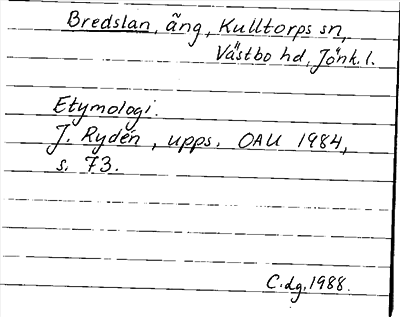 Bredslan, äng, Kulltorps sn,
Västbo hd, Jönk. l.
Etymologi.
J. Rydén, upps. OAU 1984,
s. 73.
C. dg. 1988.